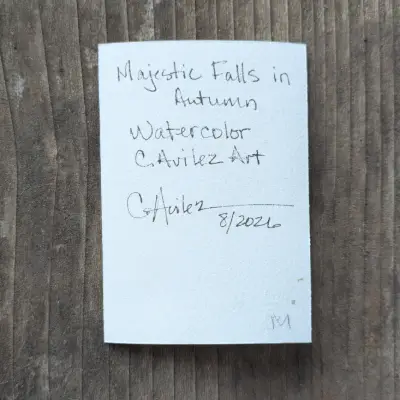 Majestic Falls in
Autumn
Watercolor
C. Avilez Art
C. Avilez
8/2026